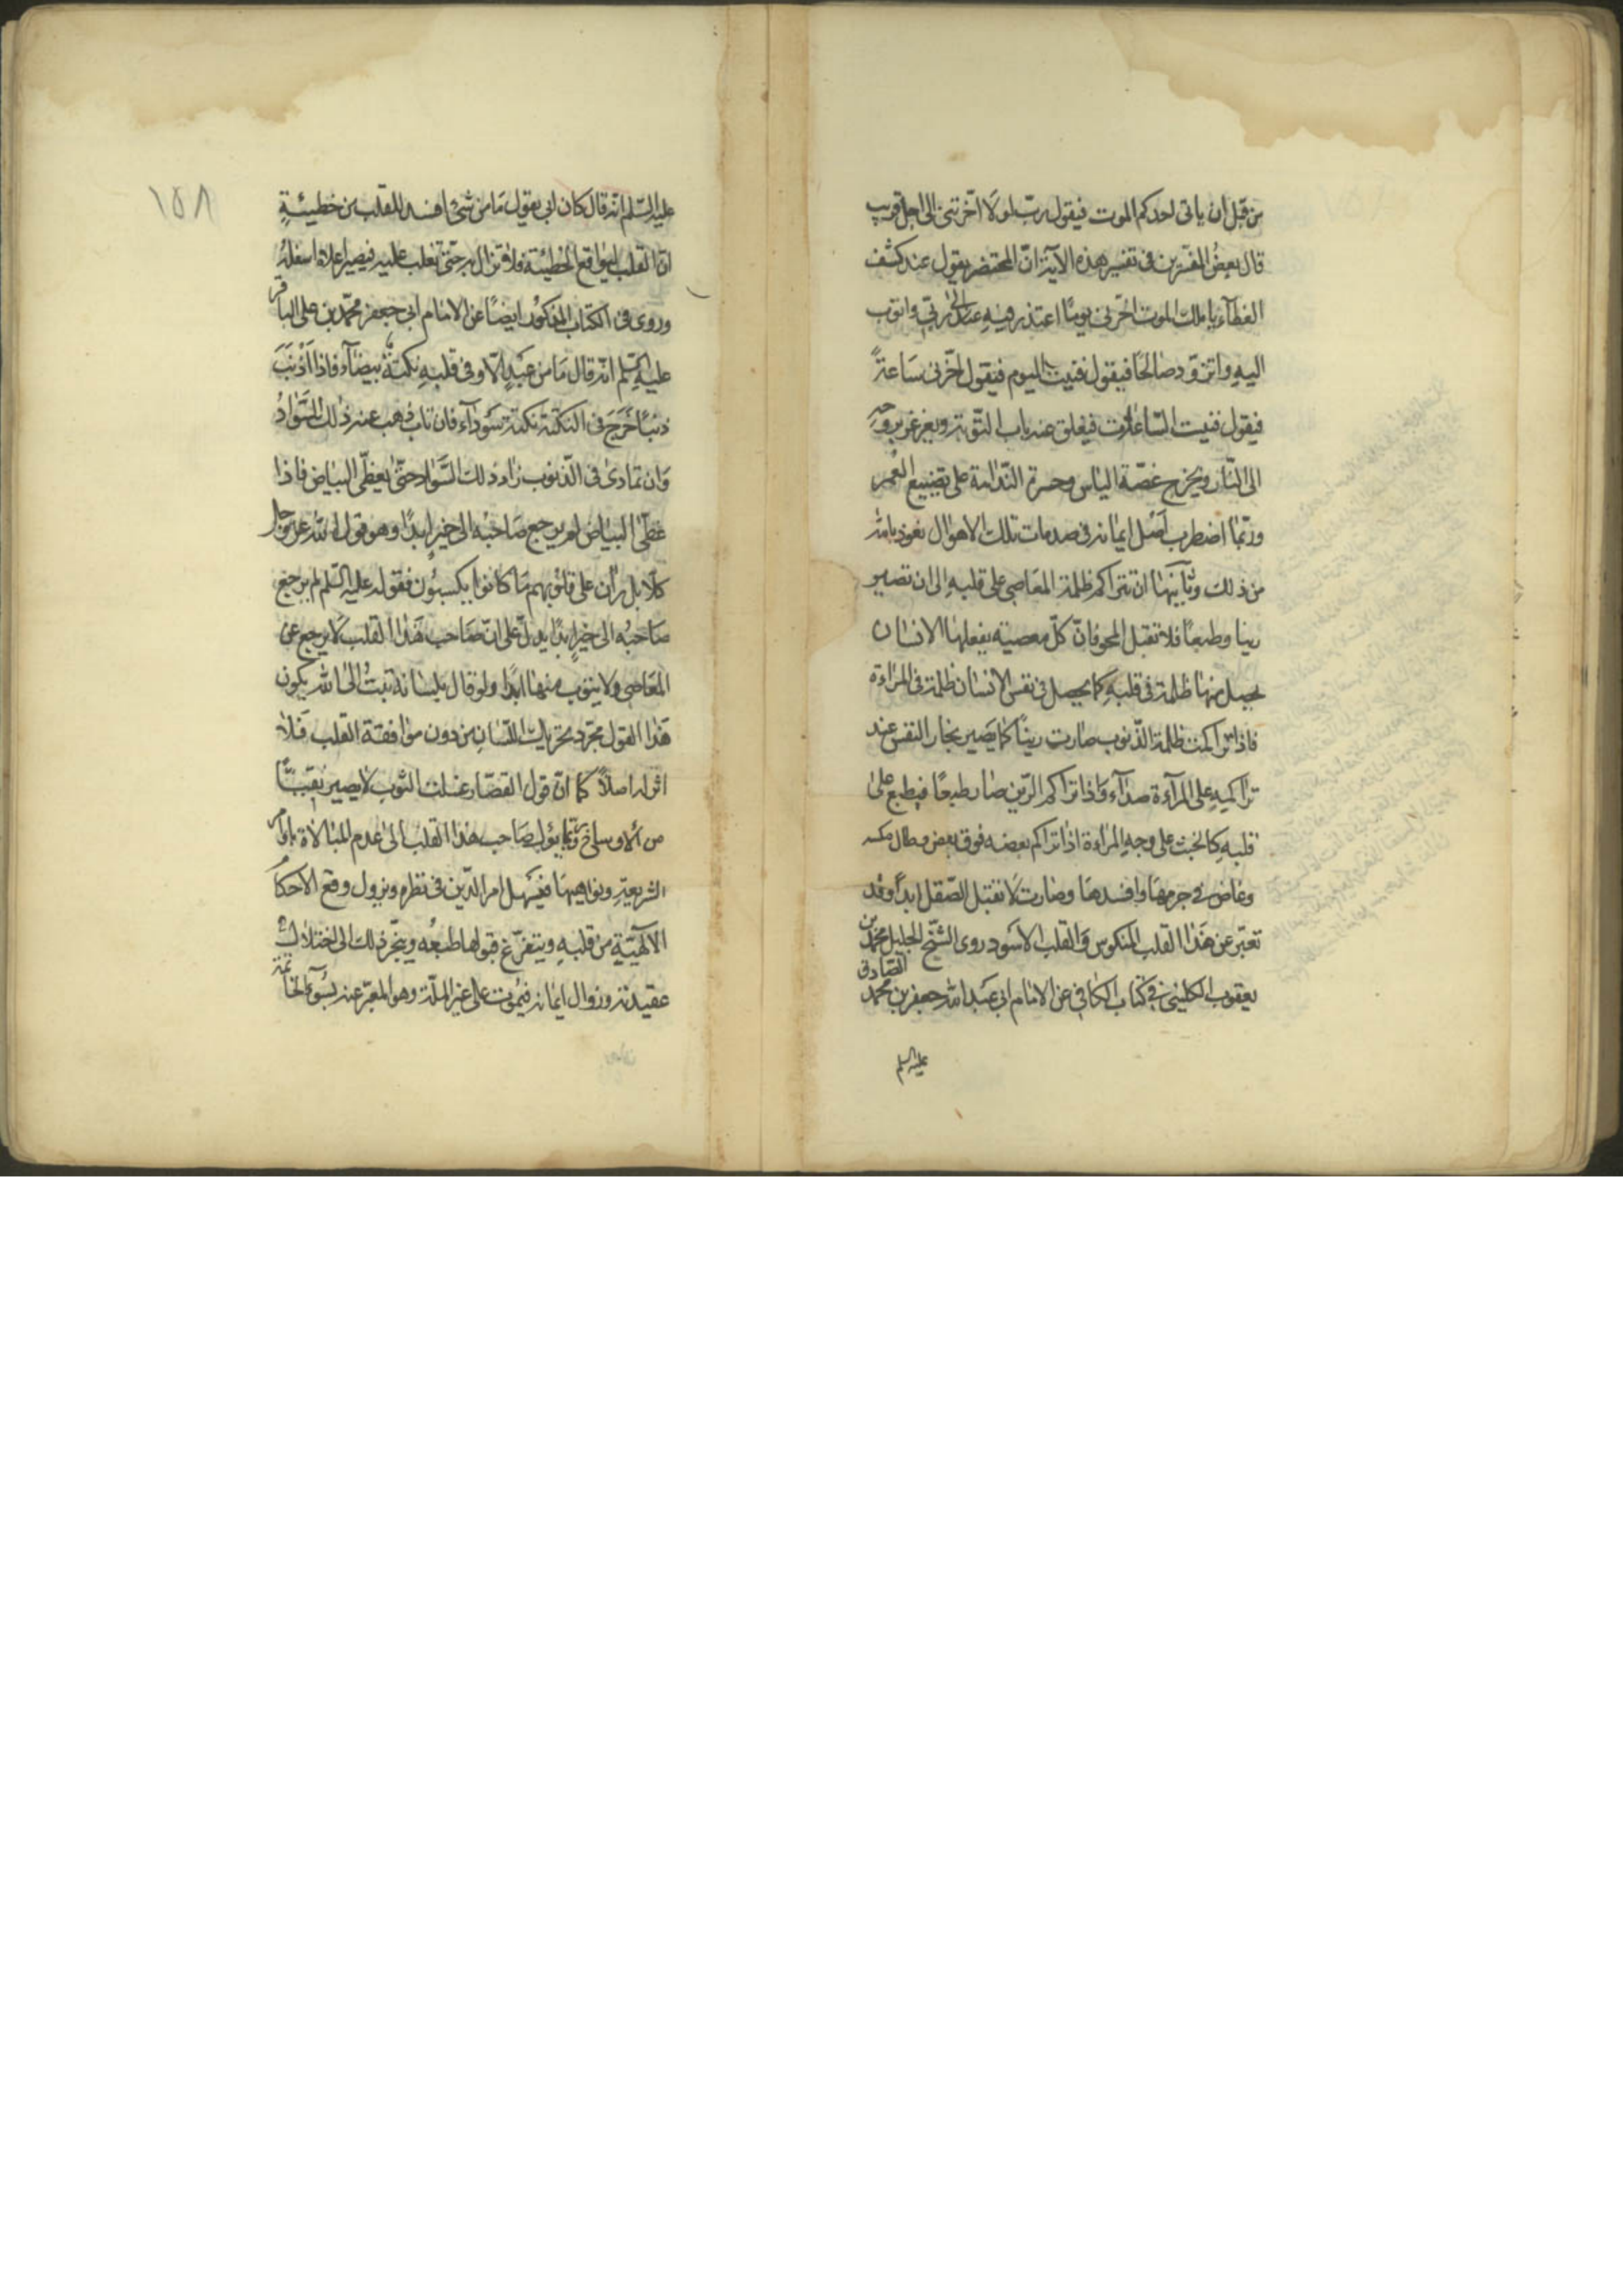 من قبل ان ياتى احدكم الموت فيقول رب لولا اخرتنى الى اجل قريب
قال بعض المفسرين فى تفسير هذه الآية ان المحتضر يقول عند كشف
الغطآء يا ملك الموت اخرنى يومًا اعتذر فيه الى ربى واتوب
اليه واتزود صالحًا فيقول فنيت الايام فيقول اخرنى ساعةً
فيقول فنيت الساعات فيغلق عنه باب التوبة ويغرغر بروحه
الى النار ويتجرع غصة الياس وحسرة الندامة على تضييع العمر
وربما اضطرب اصل ايمانه فى صدمات تلك الاهوال نعوذ بالله
من ذلك وثانيها ان تتراكم ظلمة المعاصى على قلبه الى ان تصير
رينا وطبعًا فلا تقبل المحو فان كل معصية يفعلها الانسان
يحصل منها ظلمة فى قلبه كما يحصل فى نفس الانسان ظلمة فى المراءة
فاذا تراكمت ظلمة الذنوب صارت رينًا كما يصير بخار النفس عند
تراكمه على المرآءة صدآء واذا تراكم الرين صار طبعًا فيطبع على
قلبه كالخبث على وجه المراءة اذا تراكم بعضه فوق بعض وطال مكثه
وغاض فى جرمها وافسدها وصارت لا تقبل الصقل ابدًا وقد
تعبر عن هذا القلب المنكوس والقلب الاسود روى الشيخ الجليل محمد بن
يعقوب الكلينى فى كتاب الكافى عن الامام ابى عبد الله جعفر بن محمد الصادق
عليه السلم
١٥٨
عليه السلم انه قال كان ابى يقول ما من شئ افسد للقلب من خطيئةٍ
ان القلب ليواقع الخطيئة فلا تزال به حتى تغلب عليه فيصير اعلاه اسفله
وروى فى الكتاب المذكور ايضًا عن الامام ابى جعفر محمد بن على الباقر
عليه السلم انه قال ما من عبدٍ الا وفى قلبه نكتةٌ بيضآء فاذا اذنب
ذنبًا خرج فى النكتة نكتة سودآء فان تاب ذهب عنه ذلك السواد
وان تمادى فى الذنوب زاد ذلك السواد حتى يغطى البياض فاذا
غطى البياض لم يرجع صاحبه الى خيرٍ ابدًا وهو قول الله عز وجل
كلا بل ران على قلوبهم ما كانوا يكسبون فقوله عليه السلم لم يرجع
صاحبه الى خيرٍ ابدًا يدل على ان صاحب هذا القلب لا يرجع عن
المعاصى ولا يتوب منها ابدًا ولو قال بلسانه تبت الى الله يكون
هذا القول مجرد تحريك اللسان من دون موافقة القلب فلا
اثر له اصلاً كما ان قول القصار غسلت الثوب لا يصير نقيًّا
من الاوساخ وربما يؤل صاحب هذا القلب الى عدم المبالاة باوامر
الشريعة ونواهيها فيسهل امر الدين فى نظره ويزول وقع الاحكام
الالهية من قلبه ويتفرغ قبولها طبعه وينجر ذلك الى اختلال
عقيدته وزوال ايمانه فيموت على غير الملة وهو المعبر عنه بسوء الخاتمة